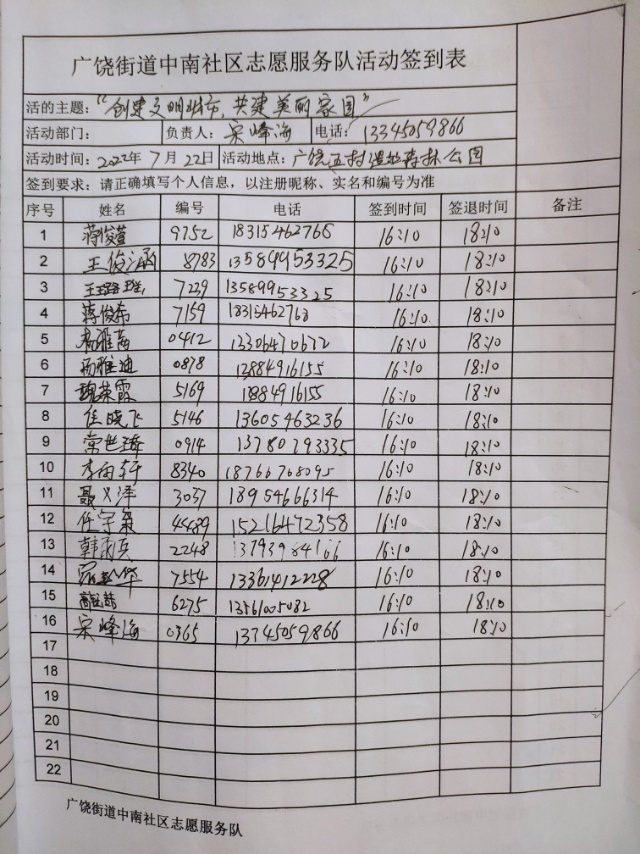 广饶街道中南社区志愿服务队活动签到表
活的主题：“创建文明城市，共建美丽家园”
活动部门： 负责人：宋峰海 电话：13345059866
活动时间：2022年7月22日 活动地点：广饶五村湿地森林公园
签到要求：请正确填写个人信息，以注册昵称、实名和编号为准
序号 姓名 编号 电话 签到时间 签退时间 备注
1 蒋俊萱 9752 18315462768 16:10 18:10
2 王俊涵 8783 13589953325 16:10 18:10
3 7229 13589953325 16:10 18:10
4 蒋俊希 7159 18315462768 16:10 18:10
5 杨雅茜 0412 13306470672 16:10 18:10
6 杨雅迪 0878 13884916155 16:10 18:10
7 魏荣霞 5169 13884916155 16:10 18:10
8 任晓飞 5146 13605463236 16:10 18:10
9 常世瑋 0914 13780793335 16:10 18:10
10 李雨轩 8340 18766768095 16:10 18:10
11 聂义泽 3037 18954666314 16:10 18:10
12 任宇 15216472358 16:10 18:10
13 2248 16:10 18:10
14 7554 13361412228 16:10 18:10
15 6275 13561005082 16:10 18:10
16 宋峰海 0365 13345059866 16:10 18:10
17
18
19
20
21
22
广饶街道中南社区志愿服务队